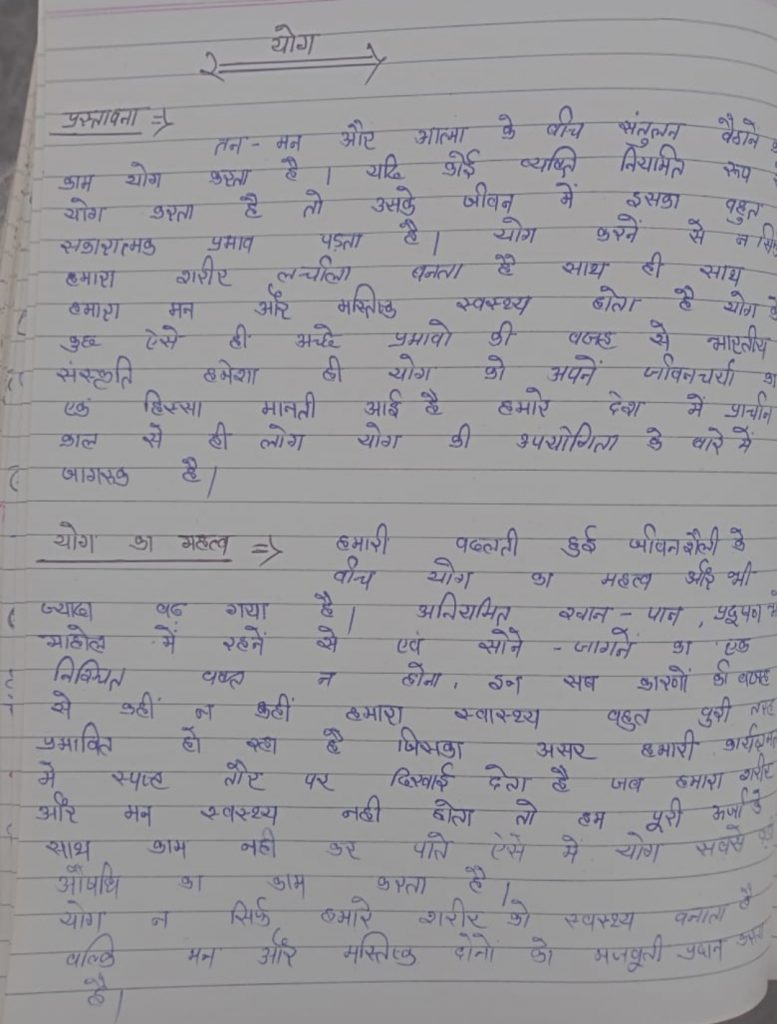 योग
प्रस्तावना ⇒
तन - मन और आत्मा के बीच संतुलन बैठाने
काम योग करता है । यदि कोई व्यक्ति नियमित रूप
योग करता है तो उसके जीवन में इसका बहुत
सकारात्मक प्रभाव पड़ता है । योग करनें से न
हमारा शरीर लचीला बनता है साथ ही साथ
हमारा मन और मस्तिष्क स्वस्थ्य होता है योग के
कुछ ऐसे ही अच्छे प्रभावो की वजह से भारतीय
संस्कृति हमेशा ही योग को अपनें जीवनचर्या का
एक हिस्सा मानती आई है हमारे देश में प्राचीन
काल से ही लोग योग की उपयोगिता के बारे में
जागरुक है ।
योग का महत्व ⇒ हमारी बदलती हुई जीवनशैली के
बीच योग का महत्व और भी
ज्यादा बढ गया है । अनियमित खान - पान , प्रदूषण
माहोल में रहनें से एवं सोने - जागनें का एक
निश्चित वक्त न होना , इन सब कारणों की वजह
से कहीं न कहीं हमारा स्वास्थ्य बहुत बुरी तरह
प्रभावित हो रहा है जिसका असर हमारी
में स्पष्ट तौर पर दिखाई देता है जब हमारा शरीर
और मन स्वस्थ्य नही होता तो हम पूरी ऊर्जा के
साथ काम नही कर पाते ऐसे में योग सबसे
औषधि का काम करता है ।
योग न सिर्फ हमारे शरीर को स्वस्थ्य बनाता है
बल्कि मन और मस्तिष्क दोनो को मजबूती प्रदान करता
है ।